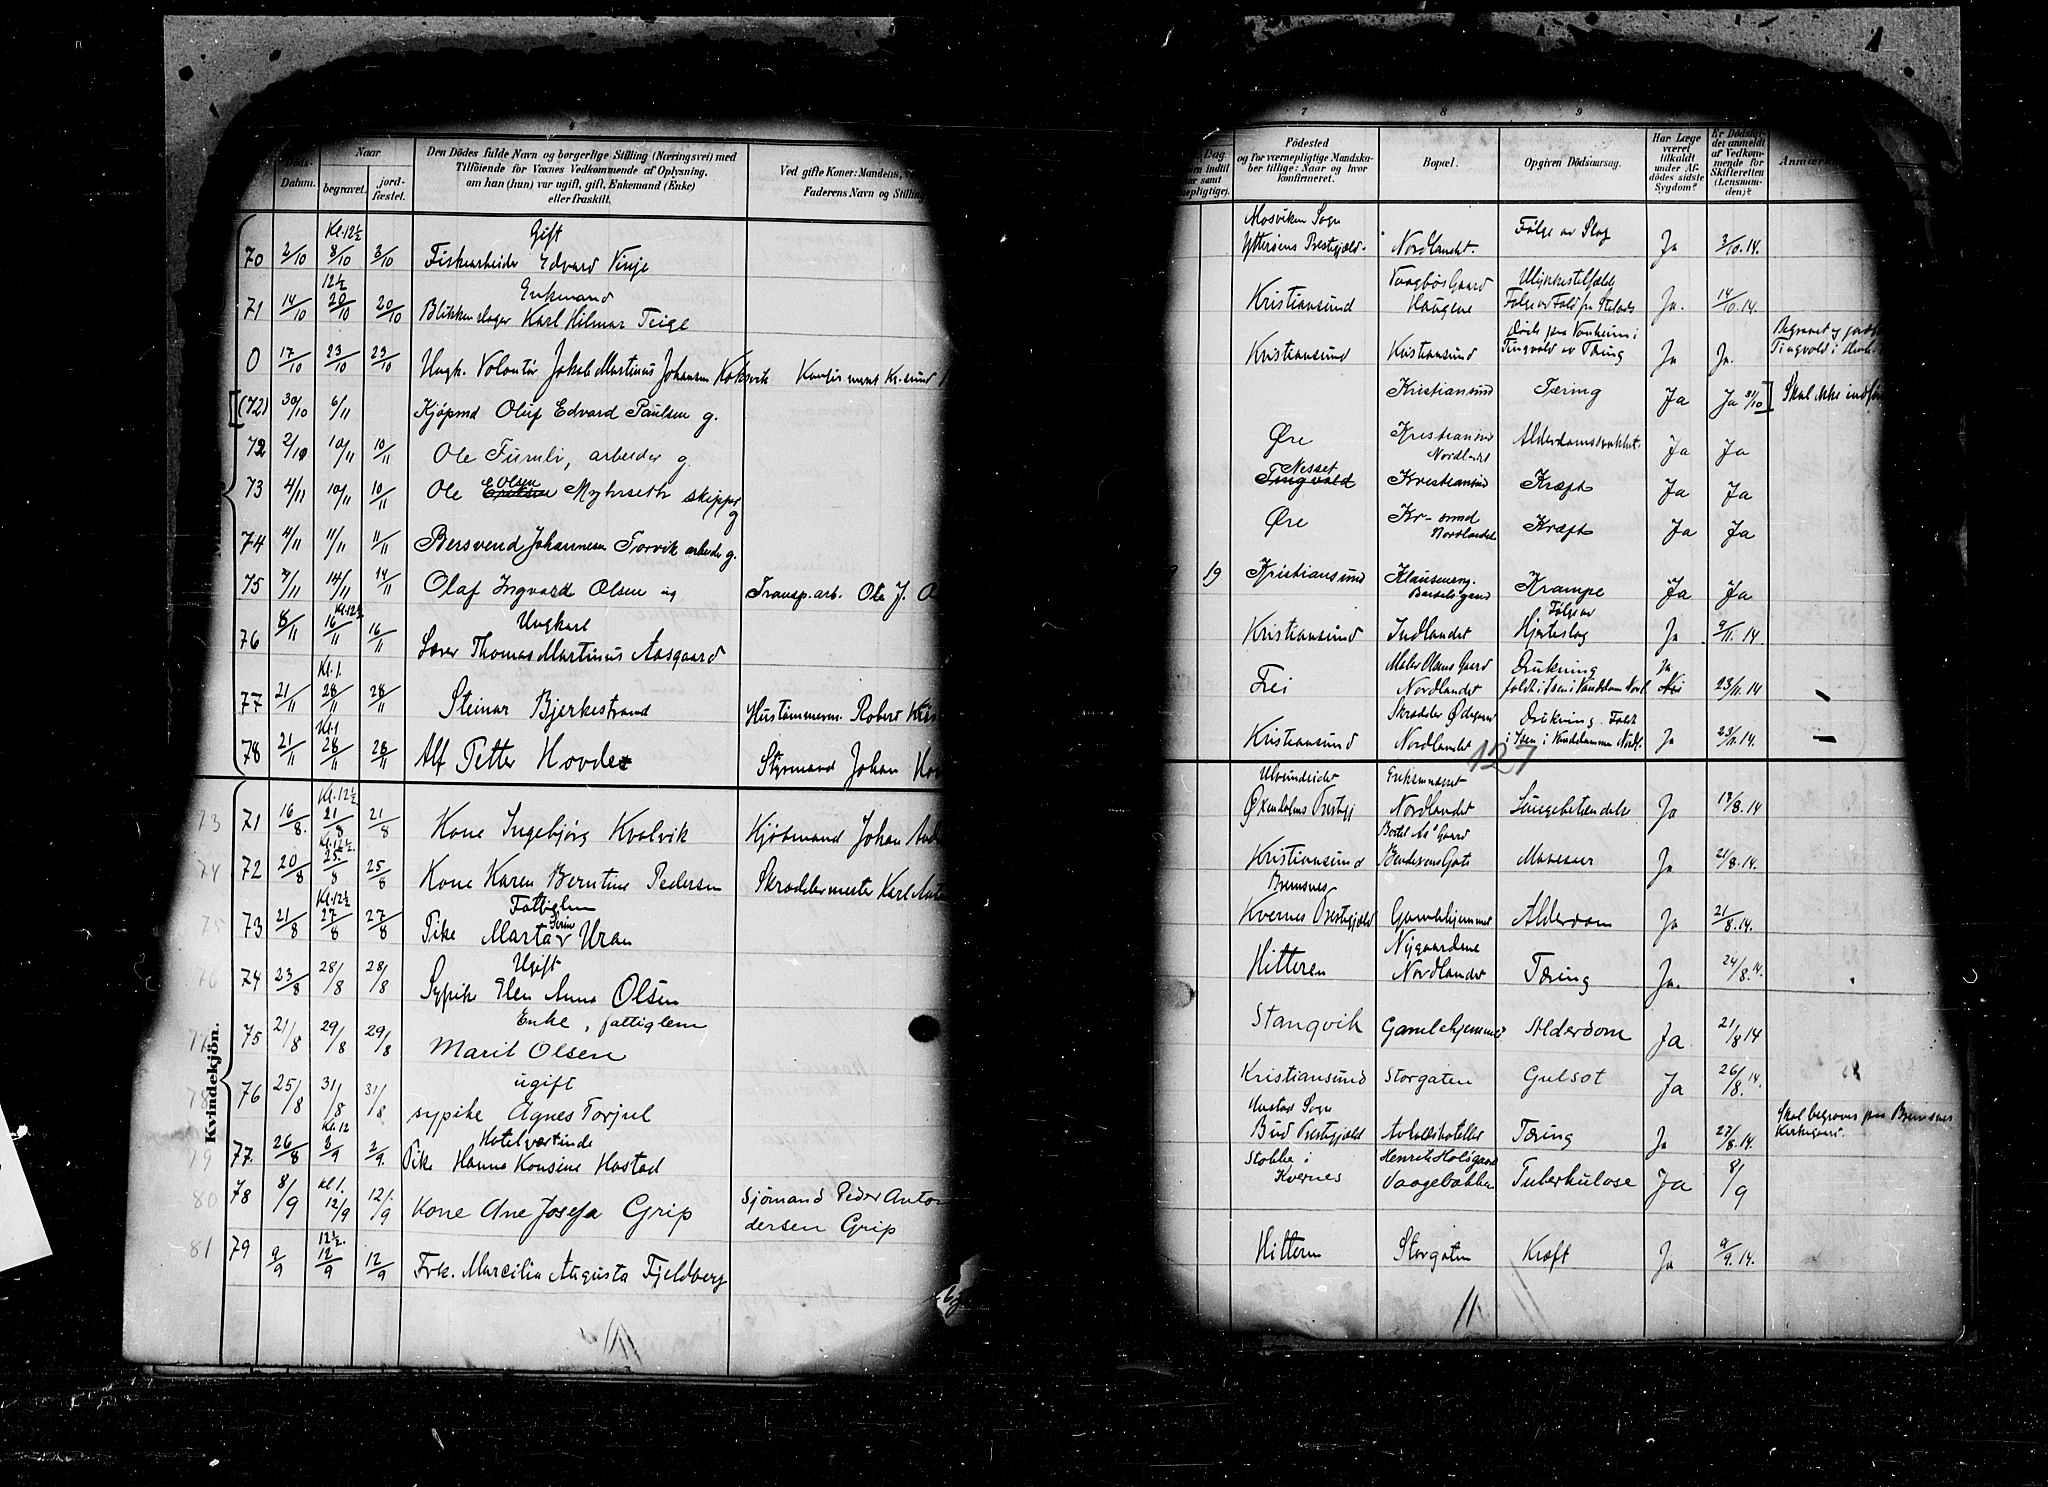 4
Döds-
Datum.
Naar
begravet.
jord-
fæstet.
Den Dödes fulde Navn og borgerlige Stilling (Næringsvei) med
Tilföiende for Voxnes Vedkommende af Oplysning,
om han (hun) var ugift, gift, Enkemand (Enke)
eller fraskilt.
Ved gifte Koner: Mandens,
Faderens Navn og Stilling
7
Födested
og for værnepligtige Mandska-
ber tillige: Naar og hvor
konfirmeret.
8
Bopæl.
9
Opgiven Dödsaarsag.
Har Læge
været
tilkaldt
under Af-
dödes sidste
Sygdom?
Er Dödsfal-
det anmeldt
af Vedkom-
mende for
Skifteretten
(Lensman-
den)?
Gift
70 2/10 Kl. 12½ 8/10 3/10 Fiskearbeider Edvard Vinje
Mosviken Sogn
Ytteröens Prestegjæld. Nordlandet. Følge av Slag Ja 3/10.14.
Enkemand
71 14/10 12½ 20/10 20/10 Blikkenslager Karl Hilmar Teige
Kristiansund Vaagbös Gaard Haugene Ulykkestilfælde Ja. 14/10.14.
0 17/10 23/10 23/10 Ungk. Volontör Jakob Martinus Johansen Koksvik
Kristiansund Kristiansund Tingvold av Tæring Ja Ja.
[(72) 30/10 6/11 Kjöpmd Oluf Edvard Paulsen g.
Kristiansund Tæring Ja Ja 31/10] Skal ikke
72 2/10 10/11 10/11 Ole Furuli, arbeider g.
Øre Kristiansund Nordlandet Ja Ja
73 4/11 10/11 10/11 Ole Olsen Myhrseth skipper g
Nesset Tingvold Kristiansund Kræft Ja Ja
74 4/11 11/11 11/11 Bersvend Johannesen Torvik arbeider g.
Øre Kr-sund Nordlandet Kræft Ja Ja
75 7/11 14/11 14/11 Olaf Ingvard Olsen ug Transp.arb. Ole J.
19 Kristiansund Krampe Ja Ja
Ungkarl
76 8/11 Kl. 12½ 16/11 16/11 Thomas Martinus Aasgaard
Kristiansund Indlandet Følge av Hjerteslag Ja 9/11.14
77 21/11 Kl. 1. 28/11 28/11 Steinar Bjerkestrand Hustömmerm. Robert
Frei Maler Olsens Gaard Nordlandet Drukning Ja Nei 23/11.14
78 21/11 Kl. 1 28/11 28/11 Alf Petter Hovde Styrmand Johan
Kristiansund Skrædder Ødegaard Nordlandet Drukning. Ja 23/11.14.
127
Kvindekjön.
73 71 16/8 Kl. 12½ 21/8 21/8 Kone Ingebjörg Kvalvik Kjöbmand Johan
Nordlandet Lungebetændelse Ja 17/8.14
74 72 20/8 Kl. 12½ 25/8 25/8 Kone Karen Berntine Pedersen Skræddermester Karl
Kristiansund Ja 21/8.14.
Fattiglem
75 73 21/8 Kl. 12½ 27/8 27/8 Pike Marta Serine Uran
Bremsnes
Kvernes Prestegjæld Gamlehjemmet Alderdom Ja 21/8.14.
Ugift
76 74 23/8 28/8 28/8 Sypike Elen Anna Olsen
Hitteren Nygaardene Nordlandet Tæring Ja. 24/8.14.
Enke, fattiglem
77 75 21/8 29/8 29/8 Marit Olsen
Stangvik Gamlehjemmet Alderdom Ja 21/8 14
ugift
78 76 25/8 31/8 31/8 sypike Agnes Torjul
Kristiansund Storgaten Gulsot Ja 26/8 14.
Hotelværtinde
79 77 26/8 Kl. 12 2/9 2/9. Pike Hanna Konsine Hastad
Hustad Sogn
Bud Prestegjæld Avholdshotellet Tæring Ja 27/8.14. Skal begraves paa Bremsnes Kirkegaard.
80 78 8/9 kl 1. 12/9 12/9 Kone Ane Josefa Grip Sjömand Peder Anton
dersen Grip
Stobbe i Kvernes Vaagebakken Tuberkulose Ja 8/9
81 79 9/9 12½. 12/9 12/9 Frk. Marcilia Augusta Fjeldberg
Hitteren Storgaten Kræft Ja 9/9.14.